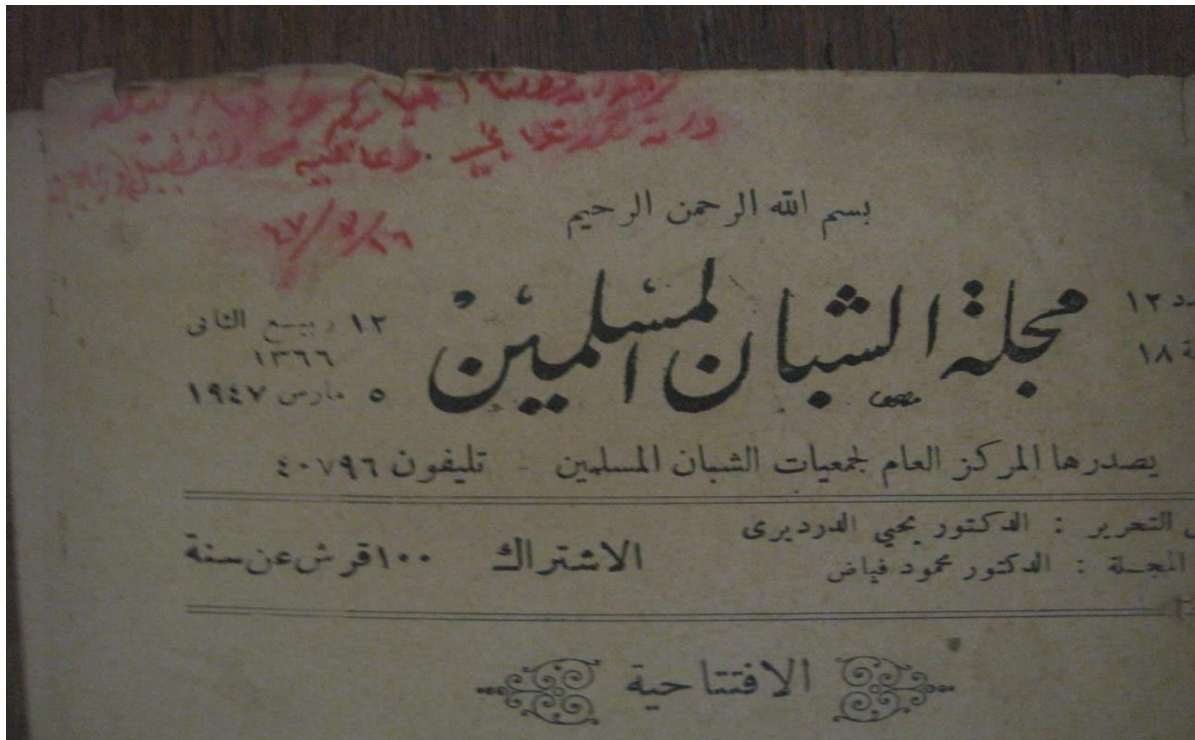 ٤٧/٥/٢٦
بسم الله الرحمن الرحيم
مجلة الشبان المسلمين
١٢
١٨
١٢ ربيع الثانى
١٣٦٦
٥ مارس ١٩٤٧
يصدرها المركز العام لجمعيات الشبان المسلمين - تليفون ٤٠٧٩٦
التحرير : الدكتور يحيى الدرديرى
المجلة : الدكتور محمود فياض
الاشتراك ١٠٠ قرش عن سنة
الافتتاحية